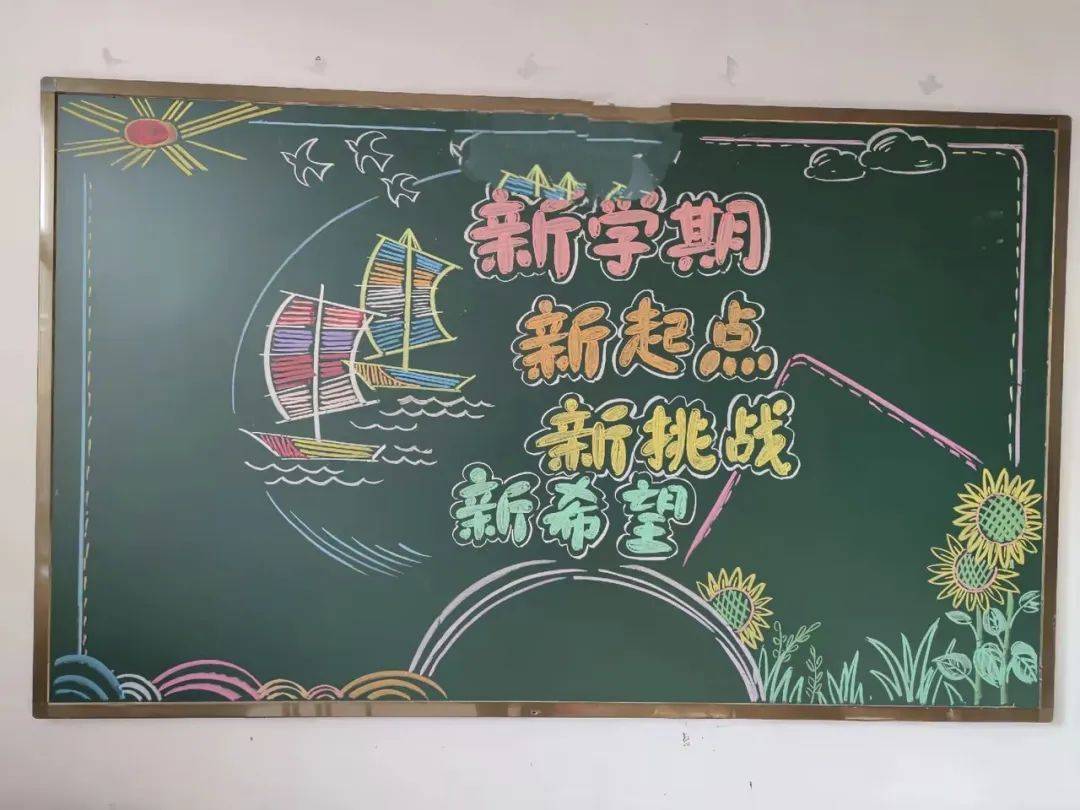 新学期
新起点
新挑战
新希望